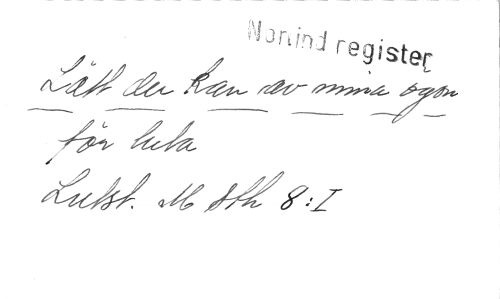 Norlind register
Lätt du kan av mina ögon
för luta
Lutst. M Sth 8:I